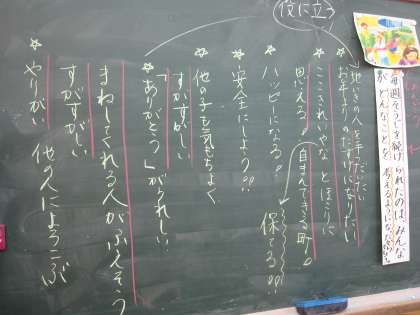 毎週そうじを続けられたのは、みんな
がどんなことを考えるようになった
役に立つ
☆地いきの人を手つだいたい
お年よりのたすけになりたい
☆ここきれいやな とほこりに
思える。 自まんできる町。
☆ハッピーになる。 保てる!!
☆安全にしよう!!
☆他の子も気もちよく
すがすがしい
☆「ありがとう」がうれしい。
まねしてくれる人がふえそう
すがすがしい
☆やりがい 他の人によろこぶ